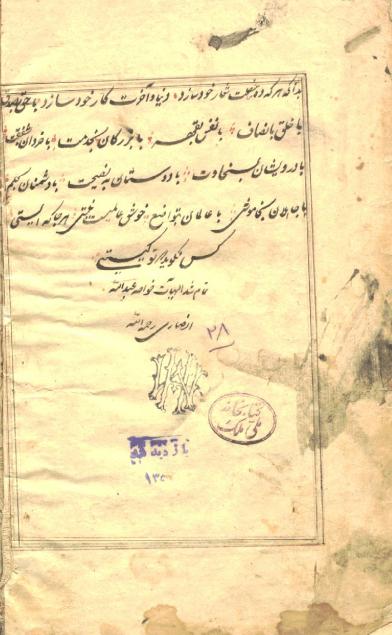 بدانکه هر که ده خصلت شعار خود سازد دنیا و آخرت کار خود سازد با حق بصدق
با خلق بانصاف با نفس بقهر با بزرگان بخدمت با خردان بشفقت
با درویشان بسخاوت با دوستان بنصیحت با دشمنان بحلم
با جاهلان بخاموشی با عالمان بتواضع خوش عالمیست نیستی هر جا که ایستی
کس نگوید که تو کیستی
تمام شد الهیات خواجه عبدالله
انصاری رحمه الله
۲۸
کتابخانه
ملی ملک
بازدید شد
۱۳۵